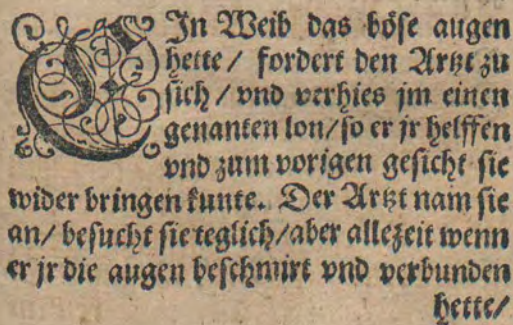 EIn Weib das böse augen
hette / fordert den Artzt zu
sich / vnd verhies jm einen
genanten lon / so er jr helffen
vnd zum vorigen gesicht sie
wider bringen kunte. Der Artzt nam sie
an / besucht sie teglich / aber allezeit wenn
er jr die augen beschmirt vnd verbunden
hette /